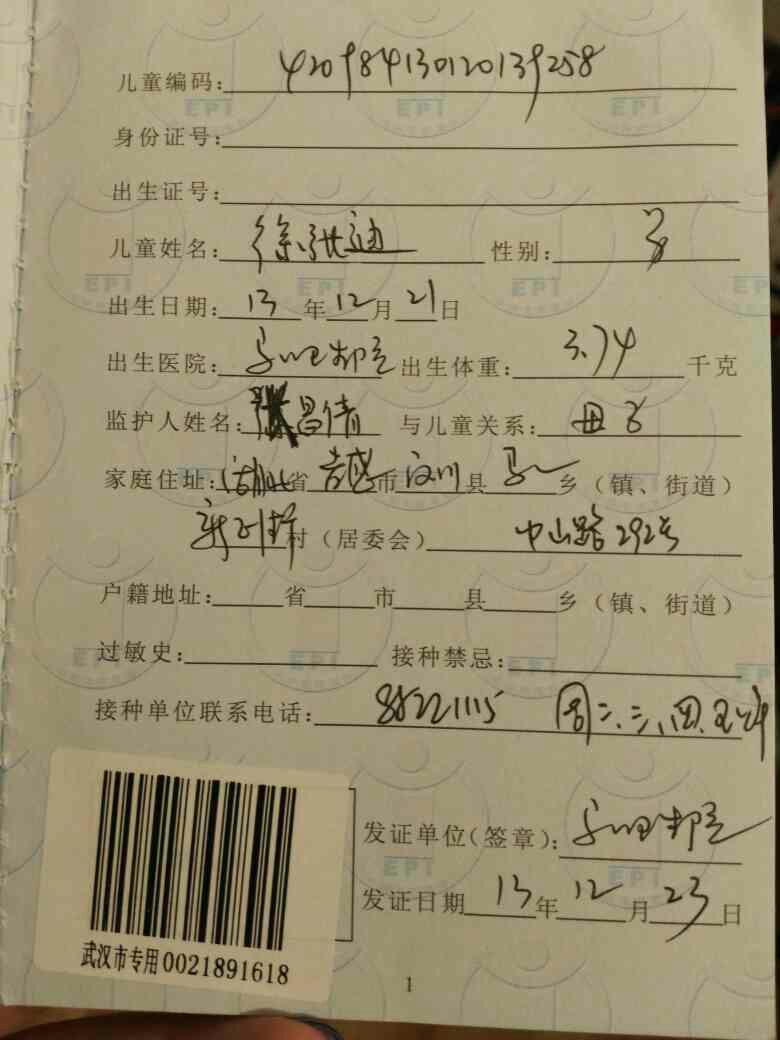 儿童编码：420984130120139258
身份证号：
出生证号：
儿童姓名：徐张迪 性别：男
出生日期：13年12月21日
出生医院： 出生体重：3.74千克
监护人姓名：张昌倩 与儿童关系：母子
家庭住址：湖北省孝感市汉川县马口乡（镇、街道）
村（居委会）中山路292号
户籍地址：省市县乡（镇、街道）
过敏史： 接种禁忌：
接种单位联系电话：85221115 周二、三、四、五
发证单位（签章）：
发证日期13年12月23日
武汉市专用0021891618
1
EPI